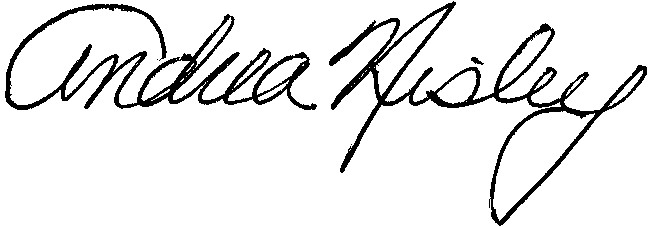 Andrea Nisley